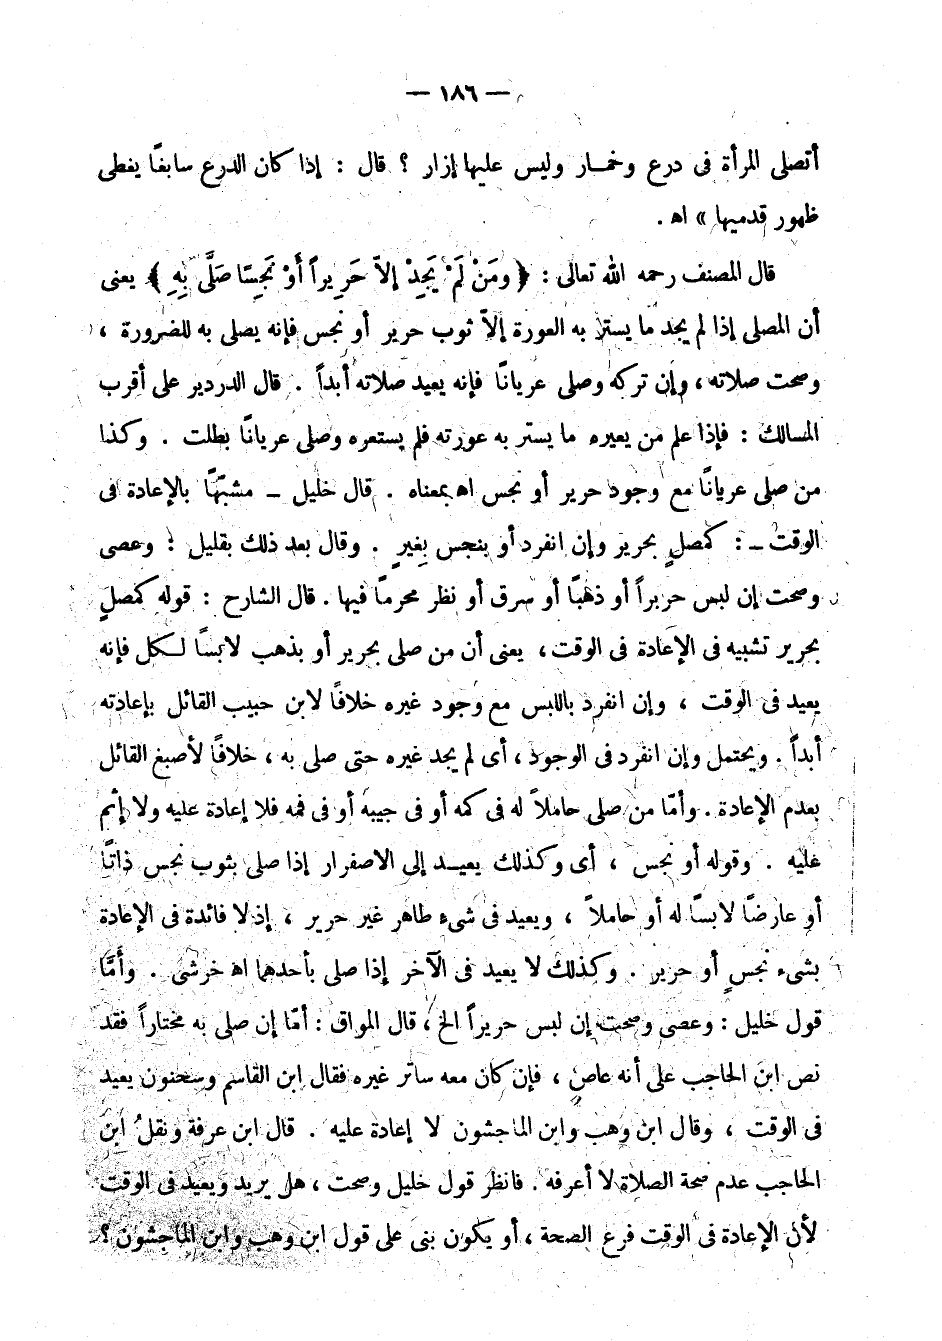 — ١٨٦ —
أتصلى المرأة فى درع وخمــار وليس عليها إزار ؟ قال : إذا كان الدرع سابغًا يغطى
ظهور قدميها » اه .
قال المصنف رحمه الله تعالى : ﴿ ومَنْ لَمْ يَجِدْ إلاّ حَرِيراً أَوْ نَجِسًا صَلَّى بِهِ ﴾ يعنى
أن المصلى إذا لم يجد ما يستتر به العورة إلاّ ثوب حرير أو نجس فإنه يصلى به للضرورة ،
وصحت صلاته ، وإن تركه وصلى عريانًا فإنه يعيد صلاته أبداً . قال الدردير على أقرب
المسالك : فإذا علم من يعيره ما يستر به عورته فلم يستعره وصلى عريانًا بطلت . وكذا
من صلى عريانًا مع وجود حرير أو نجس اه بمعناه . قال خليل ــ مشبّهًا بالإعادة فى
الوقت ــ : كمصلٍ بحرير وإن انفرد أو بنجس بِغيرٍ . وقال بعد ذلك بقليل : وعصى
وصحت إن لبس حريراً أو ذهبًا أو سرق أو نظر محرمًا فيها . قال الشارح : قوله كمصلٍ
بحرير تشبيه فى الإعادة فى الوقت ، يعنى أن من صلى بحرير أو بذهب لابسًا لــكل فإنه
يعيد فى الوقت ، وإن انفرد باللبس مع وجود غيره خلافًا لابن حبيب القائل بإعادته
أبداً . ويحتمل وإن انفرد فى الوجود ، أى لم يجد غيره حتى صلى به ، خلافًا لأصبغ القائل
بعدم الإعادة . وأمّا من صلى حاملاً له فى كمه أو فى جيبه أو فى فمه فلا إعادة عليه ولا إثم
عليه . وقوله أو نجس ، أى وكذلك يعيــد إلى الاصفرار إذا صلى بثوب نجس ذاتًا
أو عارضًا لابسًا له أو حاملاً ، ويعيد فى شىء طاهر غير حرير ، إذ لا فائدة فى الإعادة
بشىء نجسٍ أو حرير . وكذلك لا يعيد فى الآخر إذا صلى بأحدهما اه خرشى . وأَمَّا
قول خليل : وعصى وصحت إن لبس حريراً الخ ، قال المواق : أمّا إن صلى به مختاراً فقد
نص ابن الحاجب على أنه عاصٍ ، فإن كان معه ساتر غيره فقال ابن القاسم وسحنون يعيد
فى الوقت ، وقال ابن وهب وابن الماجشون لا إعادة عليه . قال ابن عرفة ونقلُ ابن
الحاجب عدم صحة الصلاة لا أعرفه . فانظر قول خليل وصحت ، هل يريد ويعيد فى الوقت
لأن الإعادة فى الوقت فرع الصحة ، أو يكون بنى على قول ابن وهب وابن الماجشون ؟